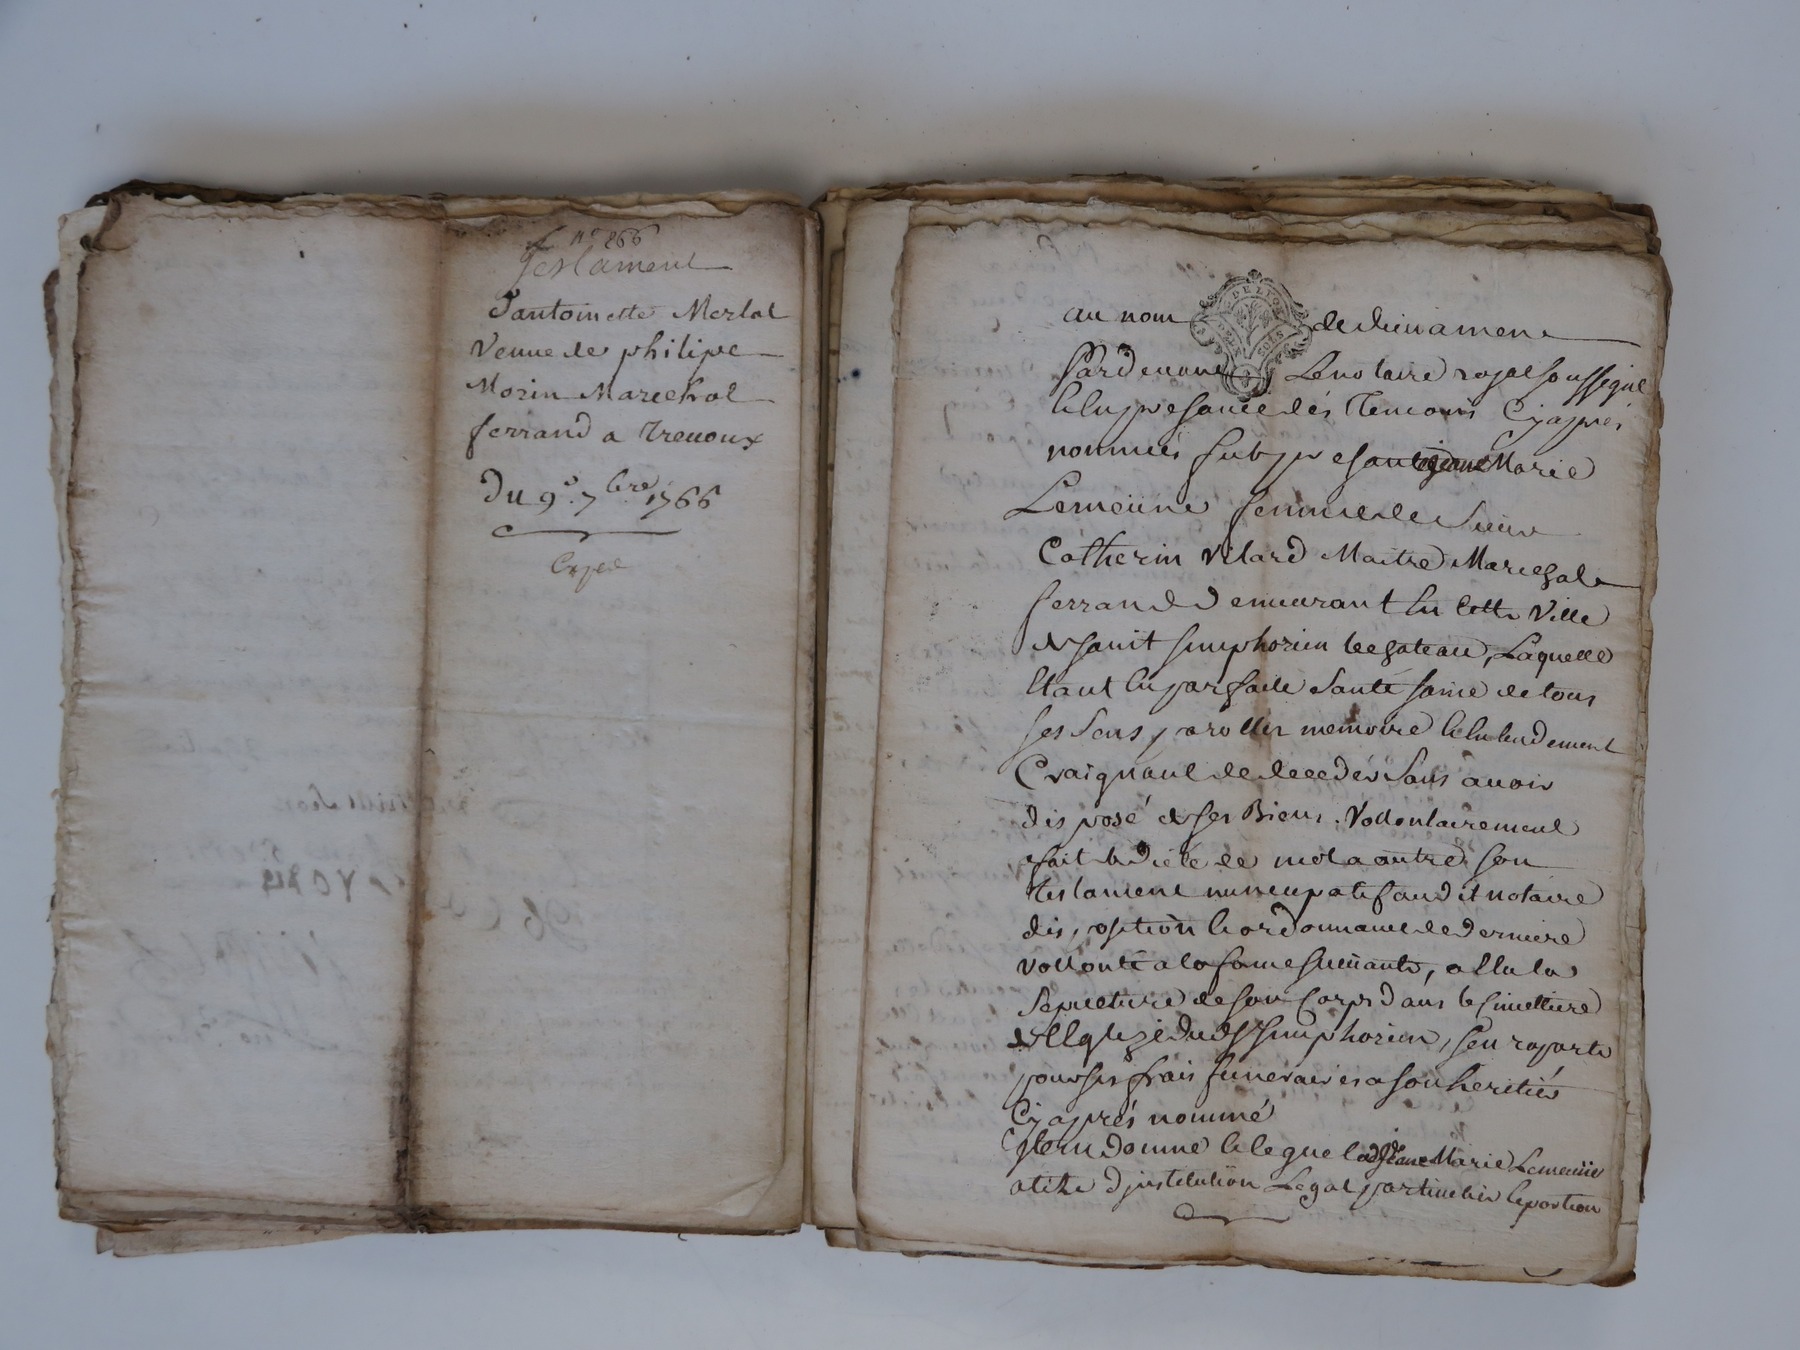 N° 266
Testament
D'antoinette Merlat
Veuve de philipe
Morin Marechal
ferrand a Trevoux
Du 9e. 7bre. 1766
Exped
au nom de dieu amen
Pardevant Le notaire royal soussigné
le en presence dés temoins Cy apres
nommés fut presante jeane Marie
Lemeüne femme de Sieur
Catherin Vilard Maitre Marechal
ferrand demeurant en Cette Ville
de saint simphorien le chateau, Laquelle
Etant en parfaite Santé saine de tous
ses sens, parolles memoire & entendement
Craignant de deceder Sans avoir
disposé de ses Biens. Vollontairement
fait & dicté de mot a autre son
testament nuncupatif audit notaire
disposition & ordonnance de derniere
vollonté a la forme suivante, a Elu la
sepulture de son Corps dans le Cimettiere
de l'Eglize dud. St simphorien, s'en raporte
pour ses frais funeraires a son heritier
Cy aprés nommé
Item donne & legue lad. jeane Marie Lemeüne
a titre d'institution Legat particulier & portion